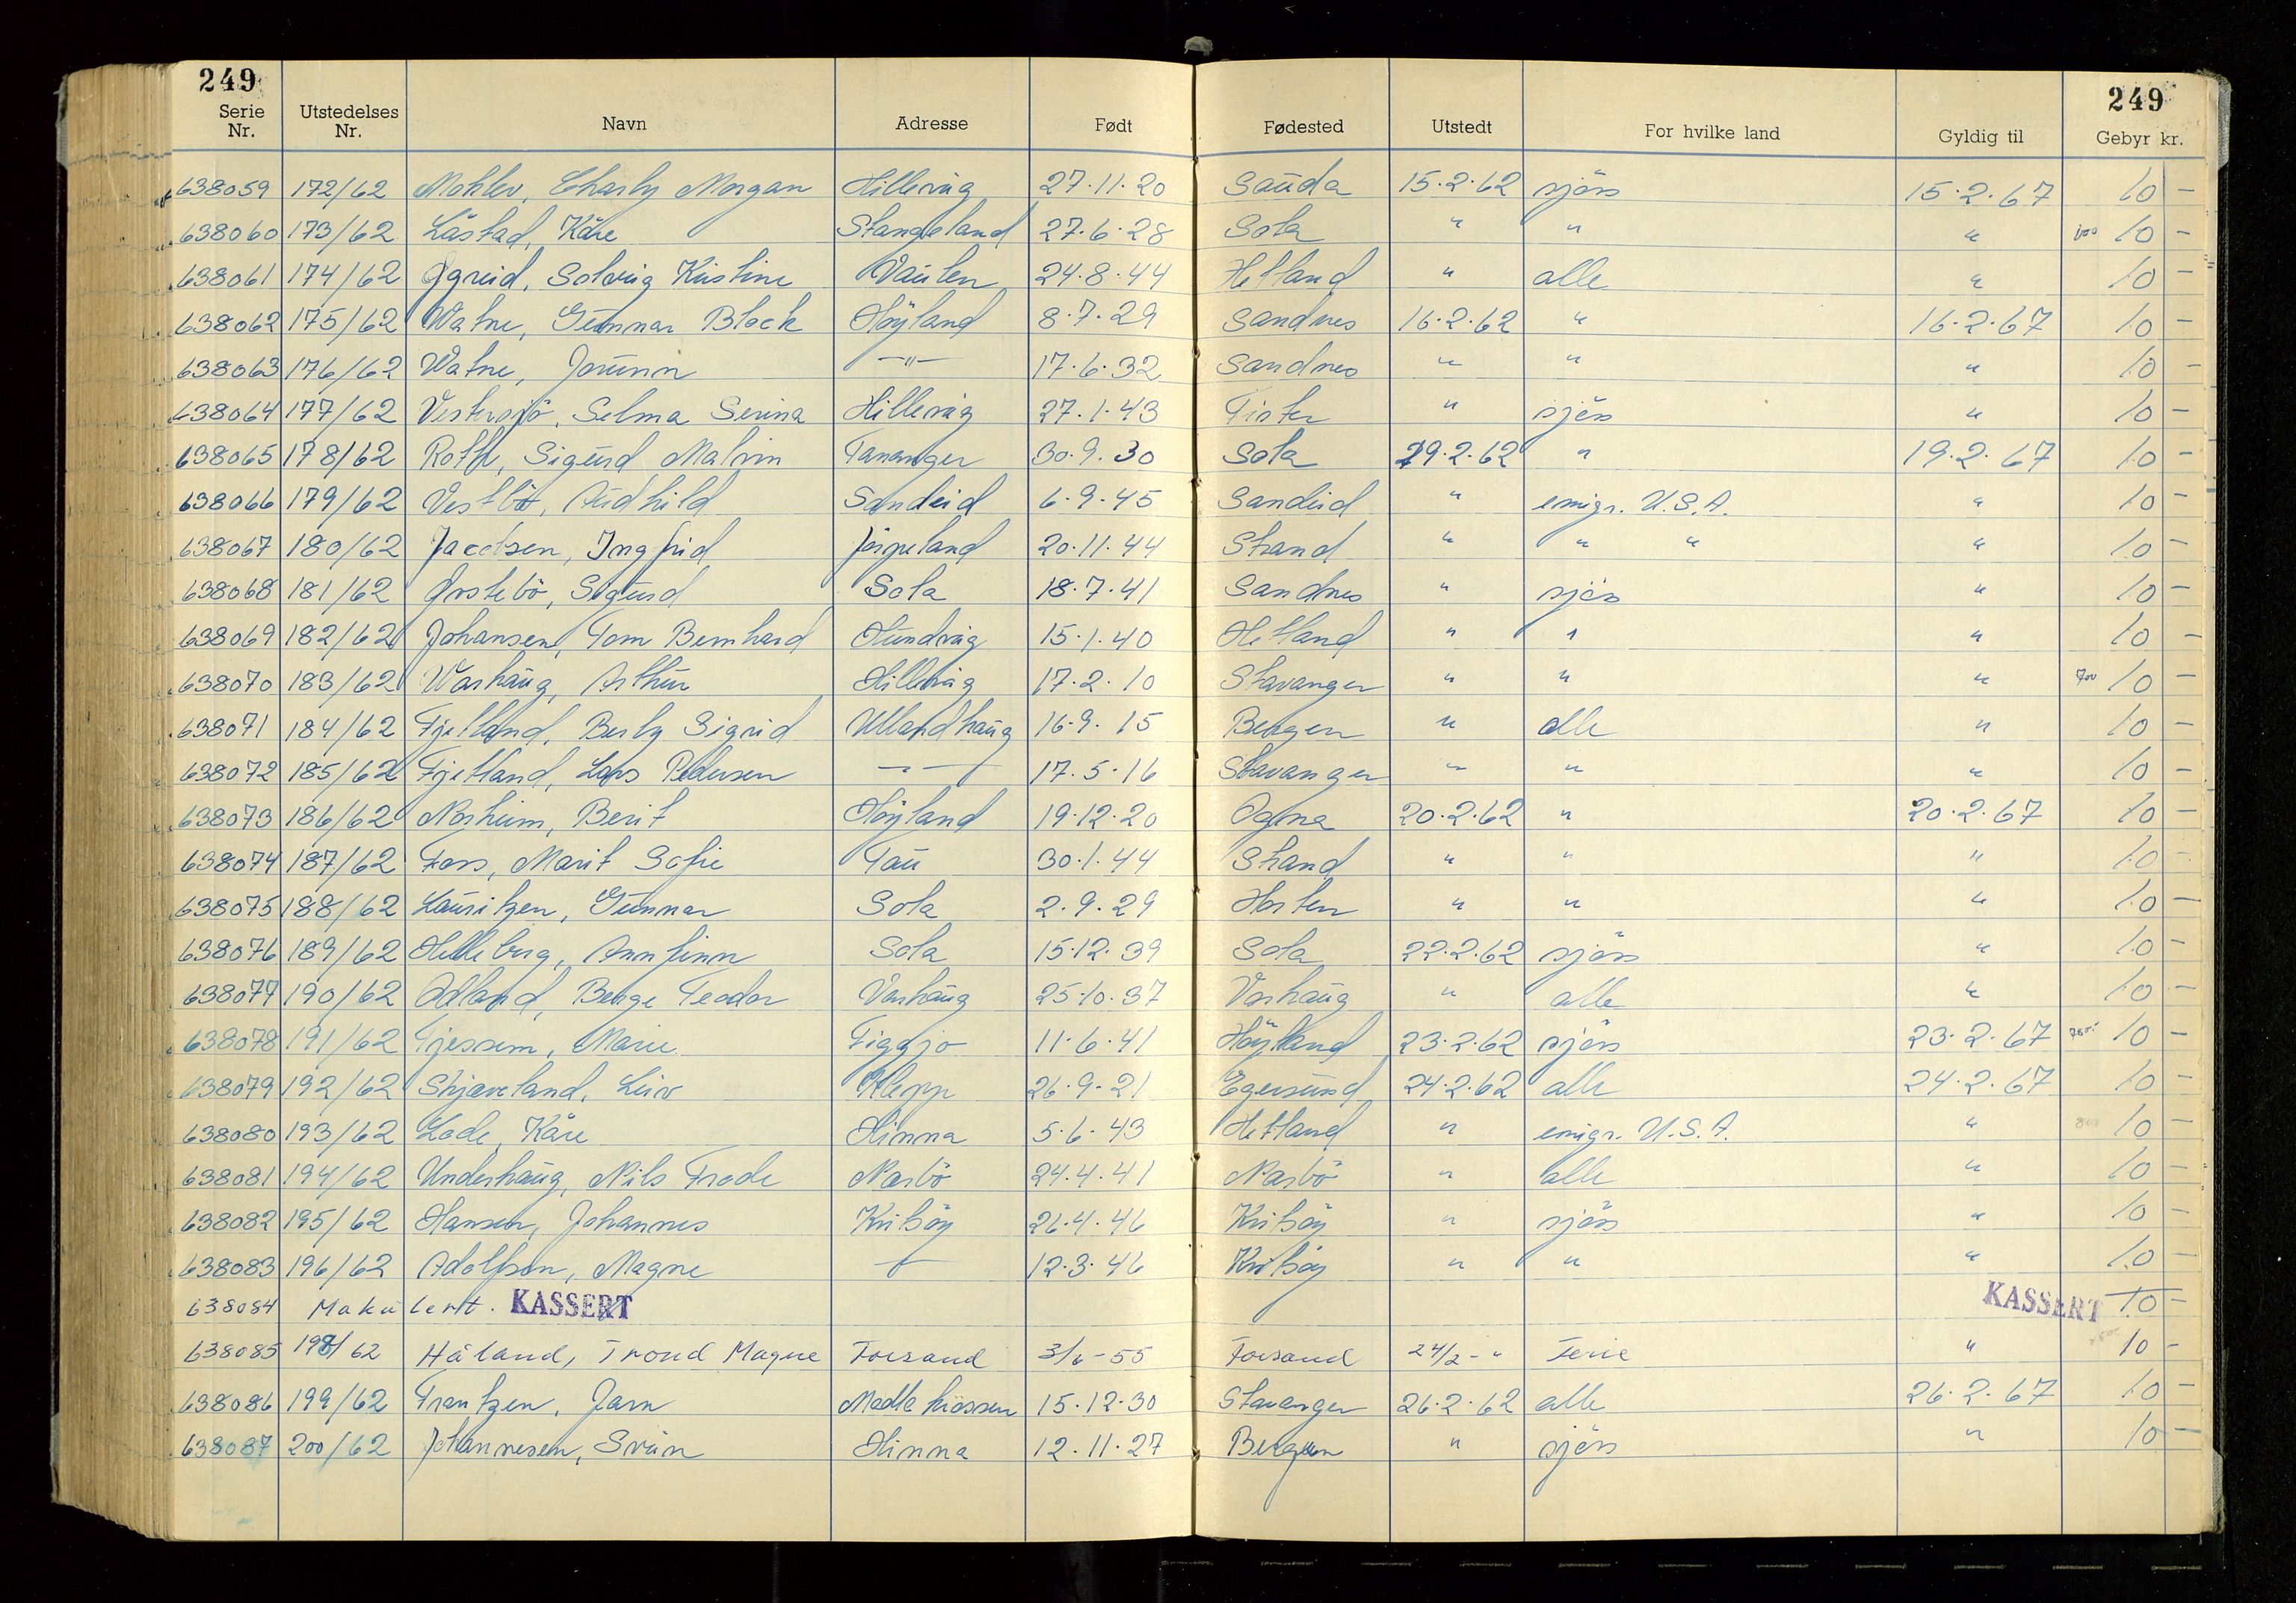 249 249
Serie Nr. Utstedelses Nr. Navn Adresse Født Fødested Utstedt For hvilke land Gyldig til Gebyr kr.
638059 172/62 Mohlev, Charly Morgan Hillevåg 27.11.20 Sauda 15.2.62 sjøss 15.2.67 10 –
638060 173/62 Låstad, Kåre Stangeland 27.6.28 Sola " " " 10 –
638061 174/62 Øgreid, Solveig Kristine Vaulen 24.8.44 Hetland " alle " 10 –
638062 175/62 Watne, Gunnar Block Höyland 8.7.29 Sandnes 16.2.62 " 16.2.67 10 –
638063 176/62 Watne, Jorunn –"– 17.6.32 Sandnes " " " 10 –
638064 177/62 Vestersjö, Selma Serina Hillevåg 27.1.43 Fister " sjöss " 10 –
638065 178/62 Roth, Sigurd Malvin Tananger 30.9.30 Sola 19.2.62 " 19.2.67 10 –
638066 179/62 Vestbö, Audhild Sandeid 6.9.45 Sandeid " emigr. U.S.A. " 10 –
638067 180/62 Jacobsen, Ingfrid Jörpeland 20.11.44 Strand " " " " 10 –
638068 181/62 Örstebö, Sigurd Sola 18.7.41 Sandnes " sjöss " 10 –
638069 182/62 Johansen, Tom Bernhard Hundvåg 15.1.40 Hetland " " " 10 –
638070 183/62 Warhaug, Arthur Hillevåg 17.2.10 Stavanger " " " 700 10 –
638071 184/62 Fjelland, Berly Sigrid Ullandhaug 16.9.15 Bergen " alle " 10 –
638072 185/62 Fjetland, Lars Pedersen –"– 17.5.16 Stavanger " " " 10 –
638073 186/62 Norheim, Berit Höyland 19.12.20 Ogna 20.2.62 " 20.2.67 10 –
638074 187/62 Foss, Marit Sofie Tau 30.1.44 Strand " " " 10 –
638075 188/62 Lauritzen, Gunnar Sola 2.9.29 Horten " " " 10 –
638076 189/62 Helleberg, Annfinn Sola 15.12.39 Sola 22.2.62 sjöss " 10 –
638077 190/62 Ödland, Berge Teodor Varhaug 25.10.37 Varhaug " alle " 10 –
638078 191/62 Tjessem, Marie Figgjo 11.6.41 Höyland 23.2.62 sjöss 23.2.67 10 –
638079 192/62 Skjæveland, Leiv Klepp 26.9.21 Egersund 24.2.62 alle 24.2.67 10 –
638080 193/62 Lode, Kåre Hinna 5.6.43 Hetland " emigr. U.S.A. " 800 10 –
638081 194/62 Underhaug, Nils Frode Nærbö 24.4.41 Nærbö " alle " 10 –
638082 195/62 Hansen, Johannes Kvitsöy 26.4.46 Kvitsöy " sjöss " 10 –
638083 196/62 Adolfsen, Magne –"– 12.3.46 Kvitsöy " " " 10 –
638084 Makulert. KASSERT KASSERT 10 –
638085 198/62 Håland, Trond Magne Forsand 3/6-55 Forsand 24/2-" Ferie " 10 –
638086 199/62 Frantzen, Jarn Madlakrossen 15.12.30 Stavanger 26.2.62 alle 26.2.67 10 –
638087 200/62 Johannesen, Svein Hinna 12.11.27 Bergen " sjöss " 10 –